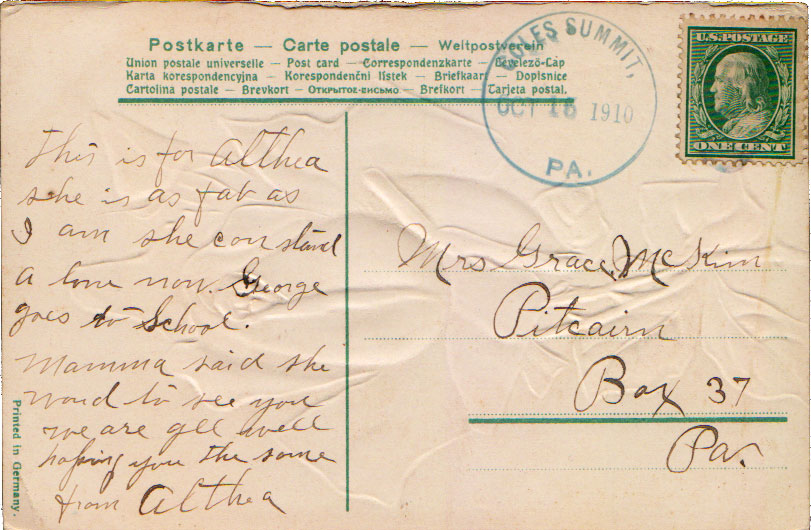 Postkarte — Carte postale — Weltpostverein
Union postale universelle — Post card — Correspondenzkarte — Levelező-Lap
Karta korespondencyjna — Korespondenční lístek — Briefkaart — Dopisnice
Cartolina postale — Brevkort — Открытое письмо — Brefkort — Tarjeta postal.
SUMMIT,
OCT 1910
PA.
U.S. POSTAGE
ONE CENT
This is for Althea
she is as fat as
I am she can stand
a lone now. George
goes to School.
Mamma said she
to see you
we are all well
hoping you the same
from Althea
Mrs Grace McKim
Pitcairn
Box 37
Pa.
Printed in Germany.